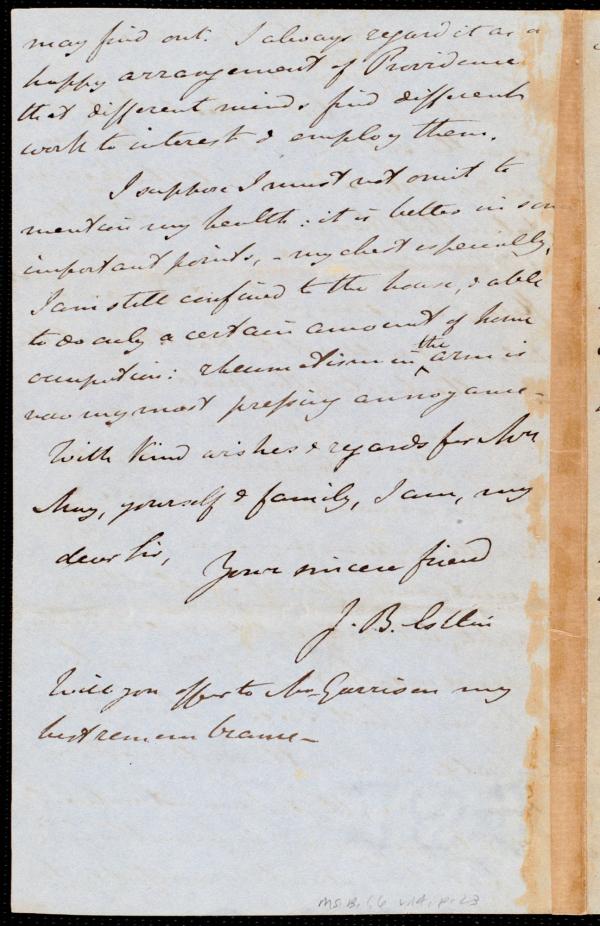 may find out. I always regard it as a
happy arrangement of Providence
that different minds find different
work to interest & employ them.
I suppose I must not omit to
mention my health: it is better in some
important points, - my chest especially,
I am still confined to the house, & able
to do only a certain amount of home
occupation: rheumatism in the arm is
now my most pressing annoyance -
With kind wishes & regards for Mrs
May, yourself & family, I am, my
dear Sir,
Yours sincere friend
J. B. Estlin
Will you offer to Mr Garrison my
best remembrance -
Ms. B. 1.6 v.14, p. 23